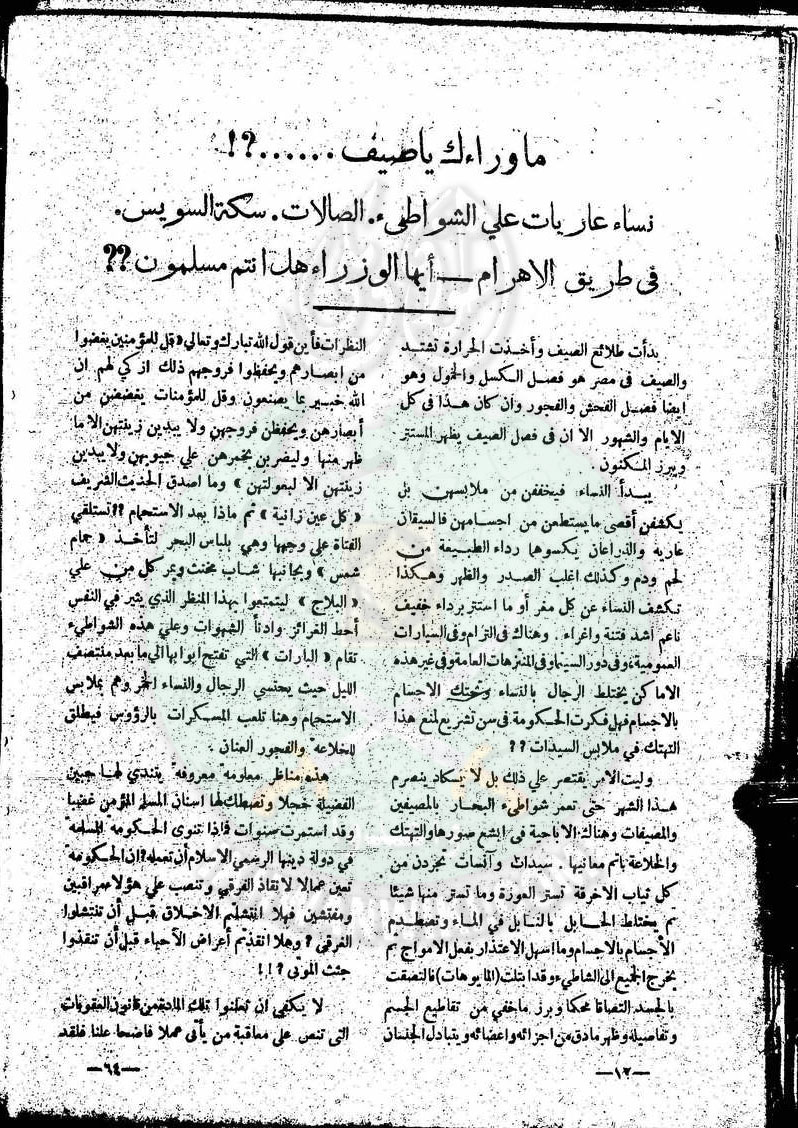 ماوراءك ياصيف ......?!
نساء عاريات علي الشواطيء. الصالات. سكة السويس.
فى طريق الاهرام ــ أيها الوزراء هل انتم مسلمون??
بدأت طلائع الصيف وأخذت الحرارة تشتد
والصيف فى مصر هو فصل الكسل والخمول وهو
ايضا فصل الفحش والفجور وان كان هذا فى كل
الايام والشهور الا ان فى فصل الصيف يظهر المستتر
ويبرز المكنون.
يبدأ النساء: فيخففن من ملابسهن بل
يكشفن أقصى ما يستطعن من اجسامهن فالسيقان
عارية والذراعان يكسوها رداء الطبيعة من
لحم ودم وكذلك اغلب الصدر والظهر وهكذا
تكشف النساء عن كل مغر أو ما استتر برداء خفيف
ناعم أشد فتنة واغراء. وهناك فى الترام وفى السيارات
العمومية، وفى دور السينما وفى المنتزهات العامة وفى غير هذه
الاماكن يختلط الرجال بالنساء وتحتك الاجسام
بالاجسام فهل فكرت الحكومة فى سن تشريع لمنع هذا
التهتك في ملابس السيدات ??
وليت الامر يقتصر علي ذلك بل لا يكاد ينصرم
هذا الشهر حتى تعمر شواطيء البحار بالمصيفين
والمصيفات وهناك الاباحية فى ابشع صورها والتهتك
والخلاعة باتم معانيها. سيدات وآنسات تجردن من
كل ثياب الاخرقة تستر العورة وما تستر منها شيئا
ثم يختلط الحابل بالنابل في الماء وتصطدم
الأجسام بالاجسام وما اسهل الاعتذار بفعل الامواج ثم
يخرج الجميع الى الشاطيء وقد ابتلت (المايوهات) فالتصقت
بالجسد التصاقا محكما وبرز ماخفي من تقاطيع الجسم
وتفاصيله وظهر مادق من اجزائه واعضائه ويتبادل الجنسان
ــ١٢ــ
النظرات فأين قول الله تبارك وتعالى «قل للمؤمنين يغضوا
من ابصارهم ويحفظوا فروجهم ذلك ازكي لهم ان
الله خبير بما يصنعون وقل للمؤمنات يغضضن من
أبصارهن ويحفظن فروجهن ولا يبدين زينتهن الا ما
ظهر منها وليضربن بخمرهن علي جيوبهن ولا يبدين
زينتهن الا لبعولتهن» وما اصدق الحديث الشريف
«كل عين زانية» ثم ماذا بعد الاستحمام ??تستلقي
الفتاة على وجهها وهي بلباس البحر لتأخذ «حمام
شمس» وبجانبها شاب مخنث ويمر كل من علي
«البلاج» ليتمتعوا بهذا المنظر الذي يثير في النفس
أحط الغرائز وادنأ الشهوات وعلي هذه الشواطيء
تقام «البارات» التي تفتح ابوابها الى ما بعد منتصف
الليل حيث يحتسي الرجال والنساء الخمر وهم بملابس
الاستحمام وهنا تلعب المسكرات بالرؤوس فيطلق
للخلاعة والفجور العنان.
هذه مناظر معلومة معروفة يتندى لها جبين
الفضيلة خجلا وتصطك لها اسنان المسلم المؤمن غضبا
وقد استمرت سنوات فماذا تنوى الحكومة المسلمة
في دولة دينها الرسمي الاسلام أن تعمله? ان الحكومة
تعين عمالا لانقاذ الغرقي وتنصب علي هؤلاء مراقبين
ومفتشين فهلا انتشلتم الاخلاق قبل أن تنتشلوا
الغرقي? وهلا انقذتم أعراض الأحياء قبل أن تنقذوا
جثث الموتى ?!!
لا يكفى ان تعلنوا تلك المادة من قانون العقوبات
التى تنص على معاقبة من يأتى عملا فاضحا علنا فلقد
ــ٦٤ــ